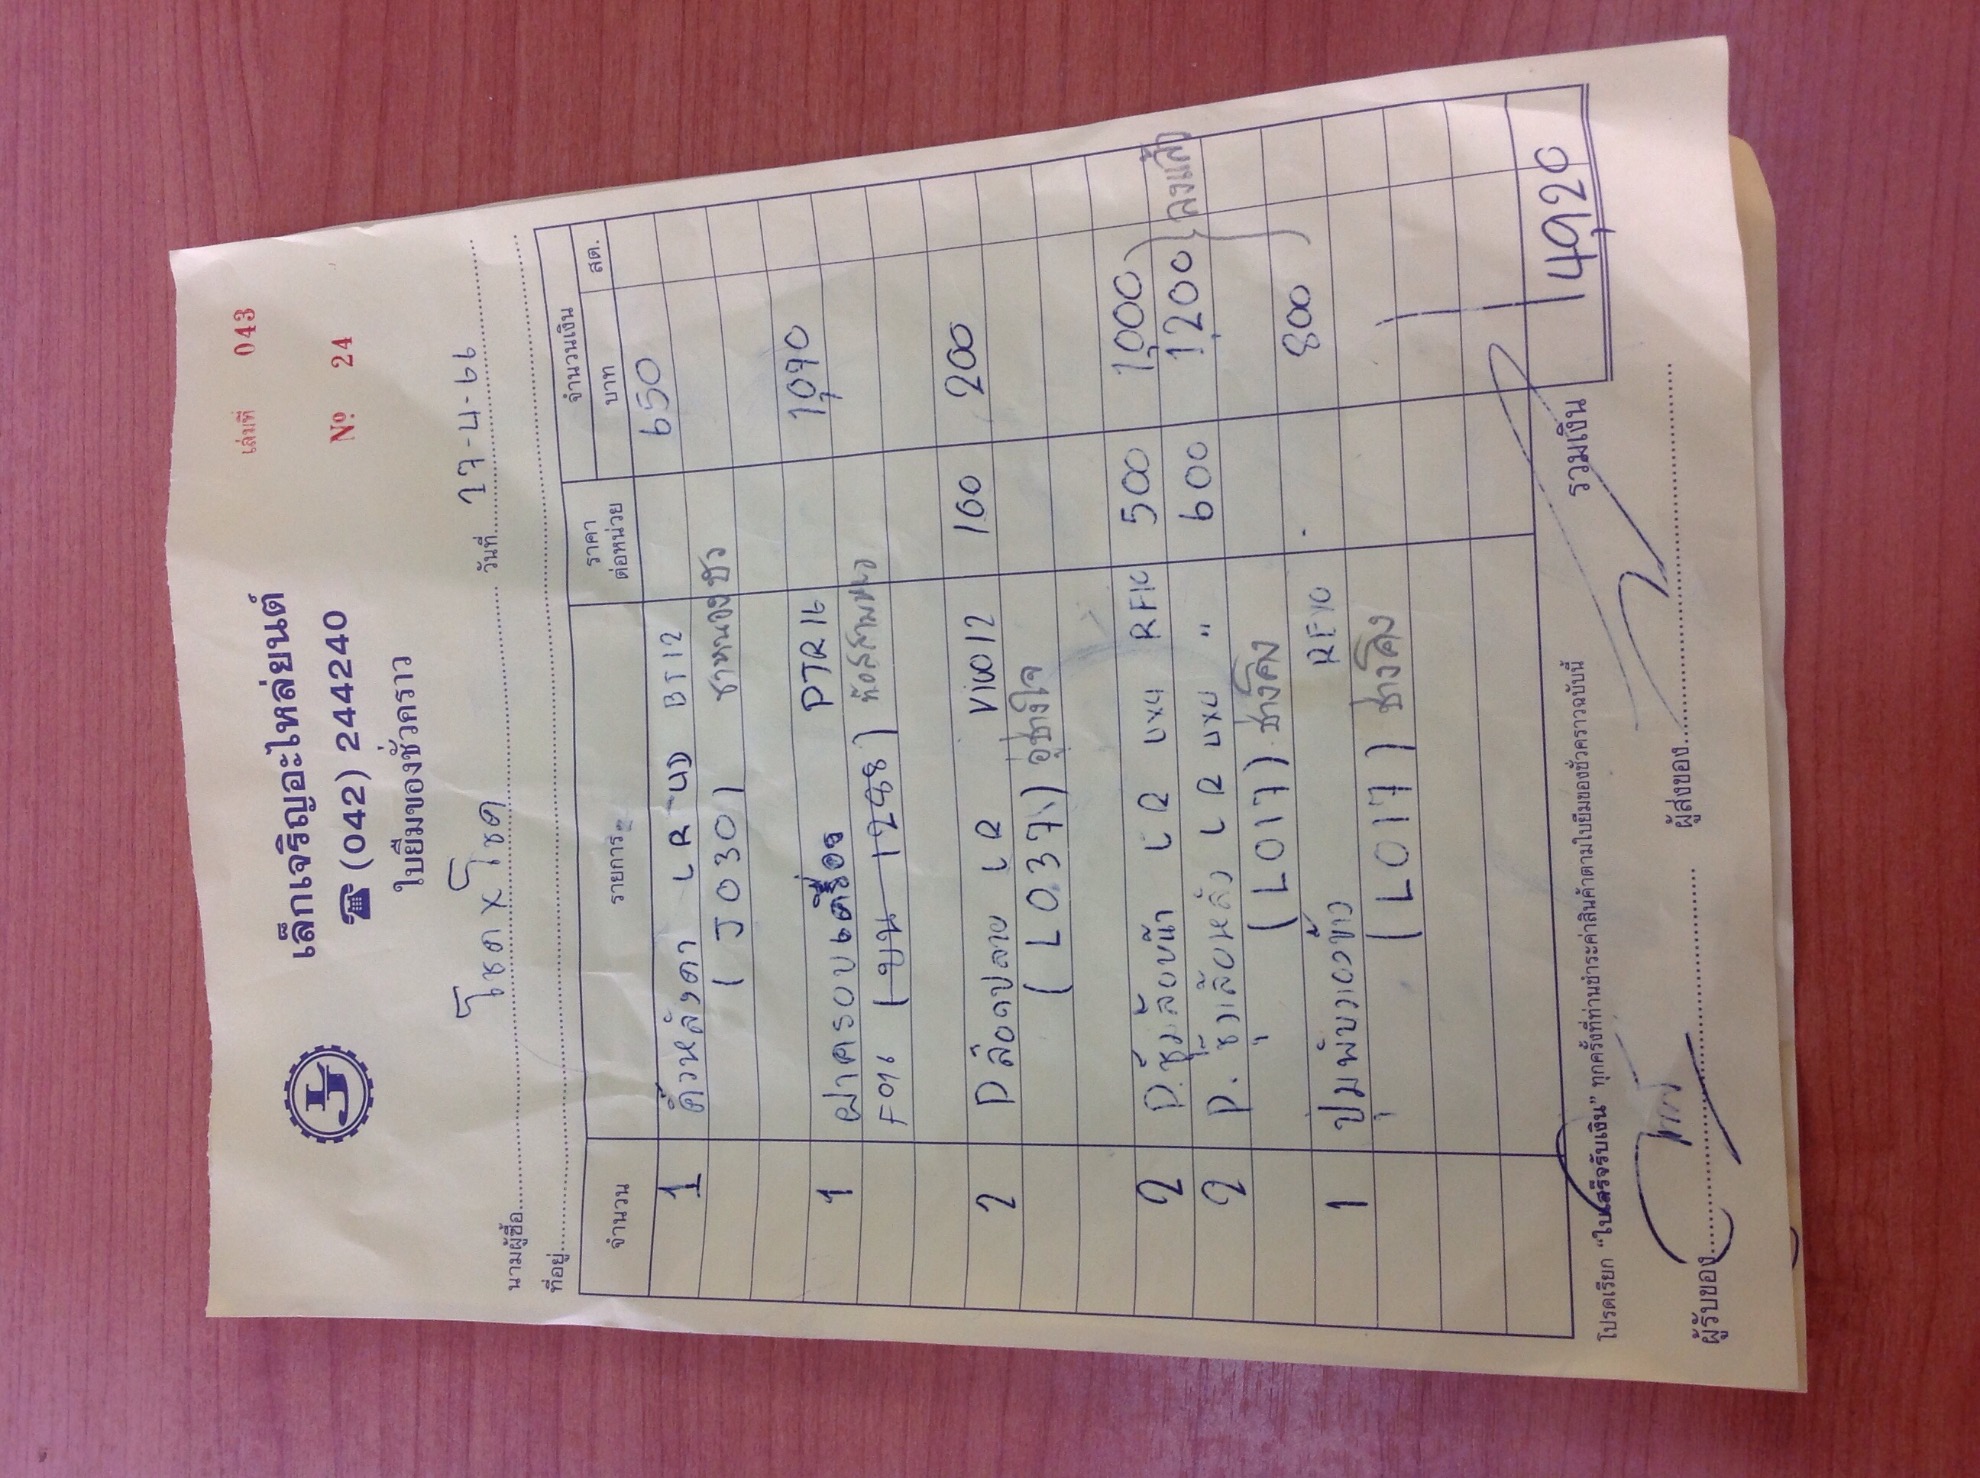 เล่มที่ 043
เล็กเจริญอะไหล่ยนต์
☎ (042) 244240
Nº 24
ใบยืมของชั่วคราว
นามผู้ซื้อ โชค X โชค วันที่ 27-4-66
ที่อยู่
จำนวน รายการ ราคาต่อหน่วย จำนวนเงิน บาท สต.
1 คิ้วหลังคา LR 4D BT12 650
(J030)
1 ฝาครอบเครื่อง PTR16 1,090
F016
2 P ลือคปลาย LR VIOO12 100 200
(L037) อู่ช่างใจ
2 P. ซุ้มล้อหน้า LR 4x4 500 1,000
2 P. ซุ้มล้อหลัง LR 4x4 " 600 1,200 ลงแล้ว
(L017) ช่างโค้ง
1 RF10 800
(L017) ช่างโค้ง
รวมเงิน 4,920
โปรดเรียก "ใบเสร็จรับเงิน" ทุกครั้งที่ท่านชำระค่าสินค้าตามใบยืมของชั่วคราวฉบับนี้
ผู้รับของ ผู้ส่งของ